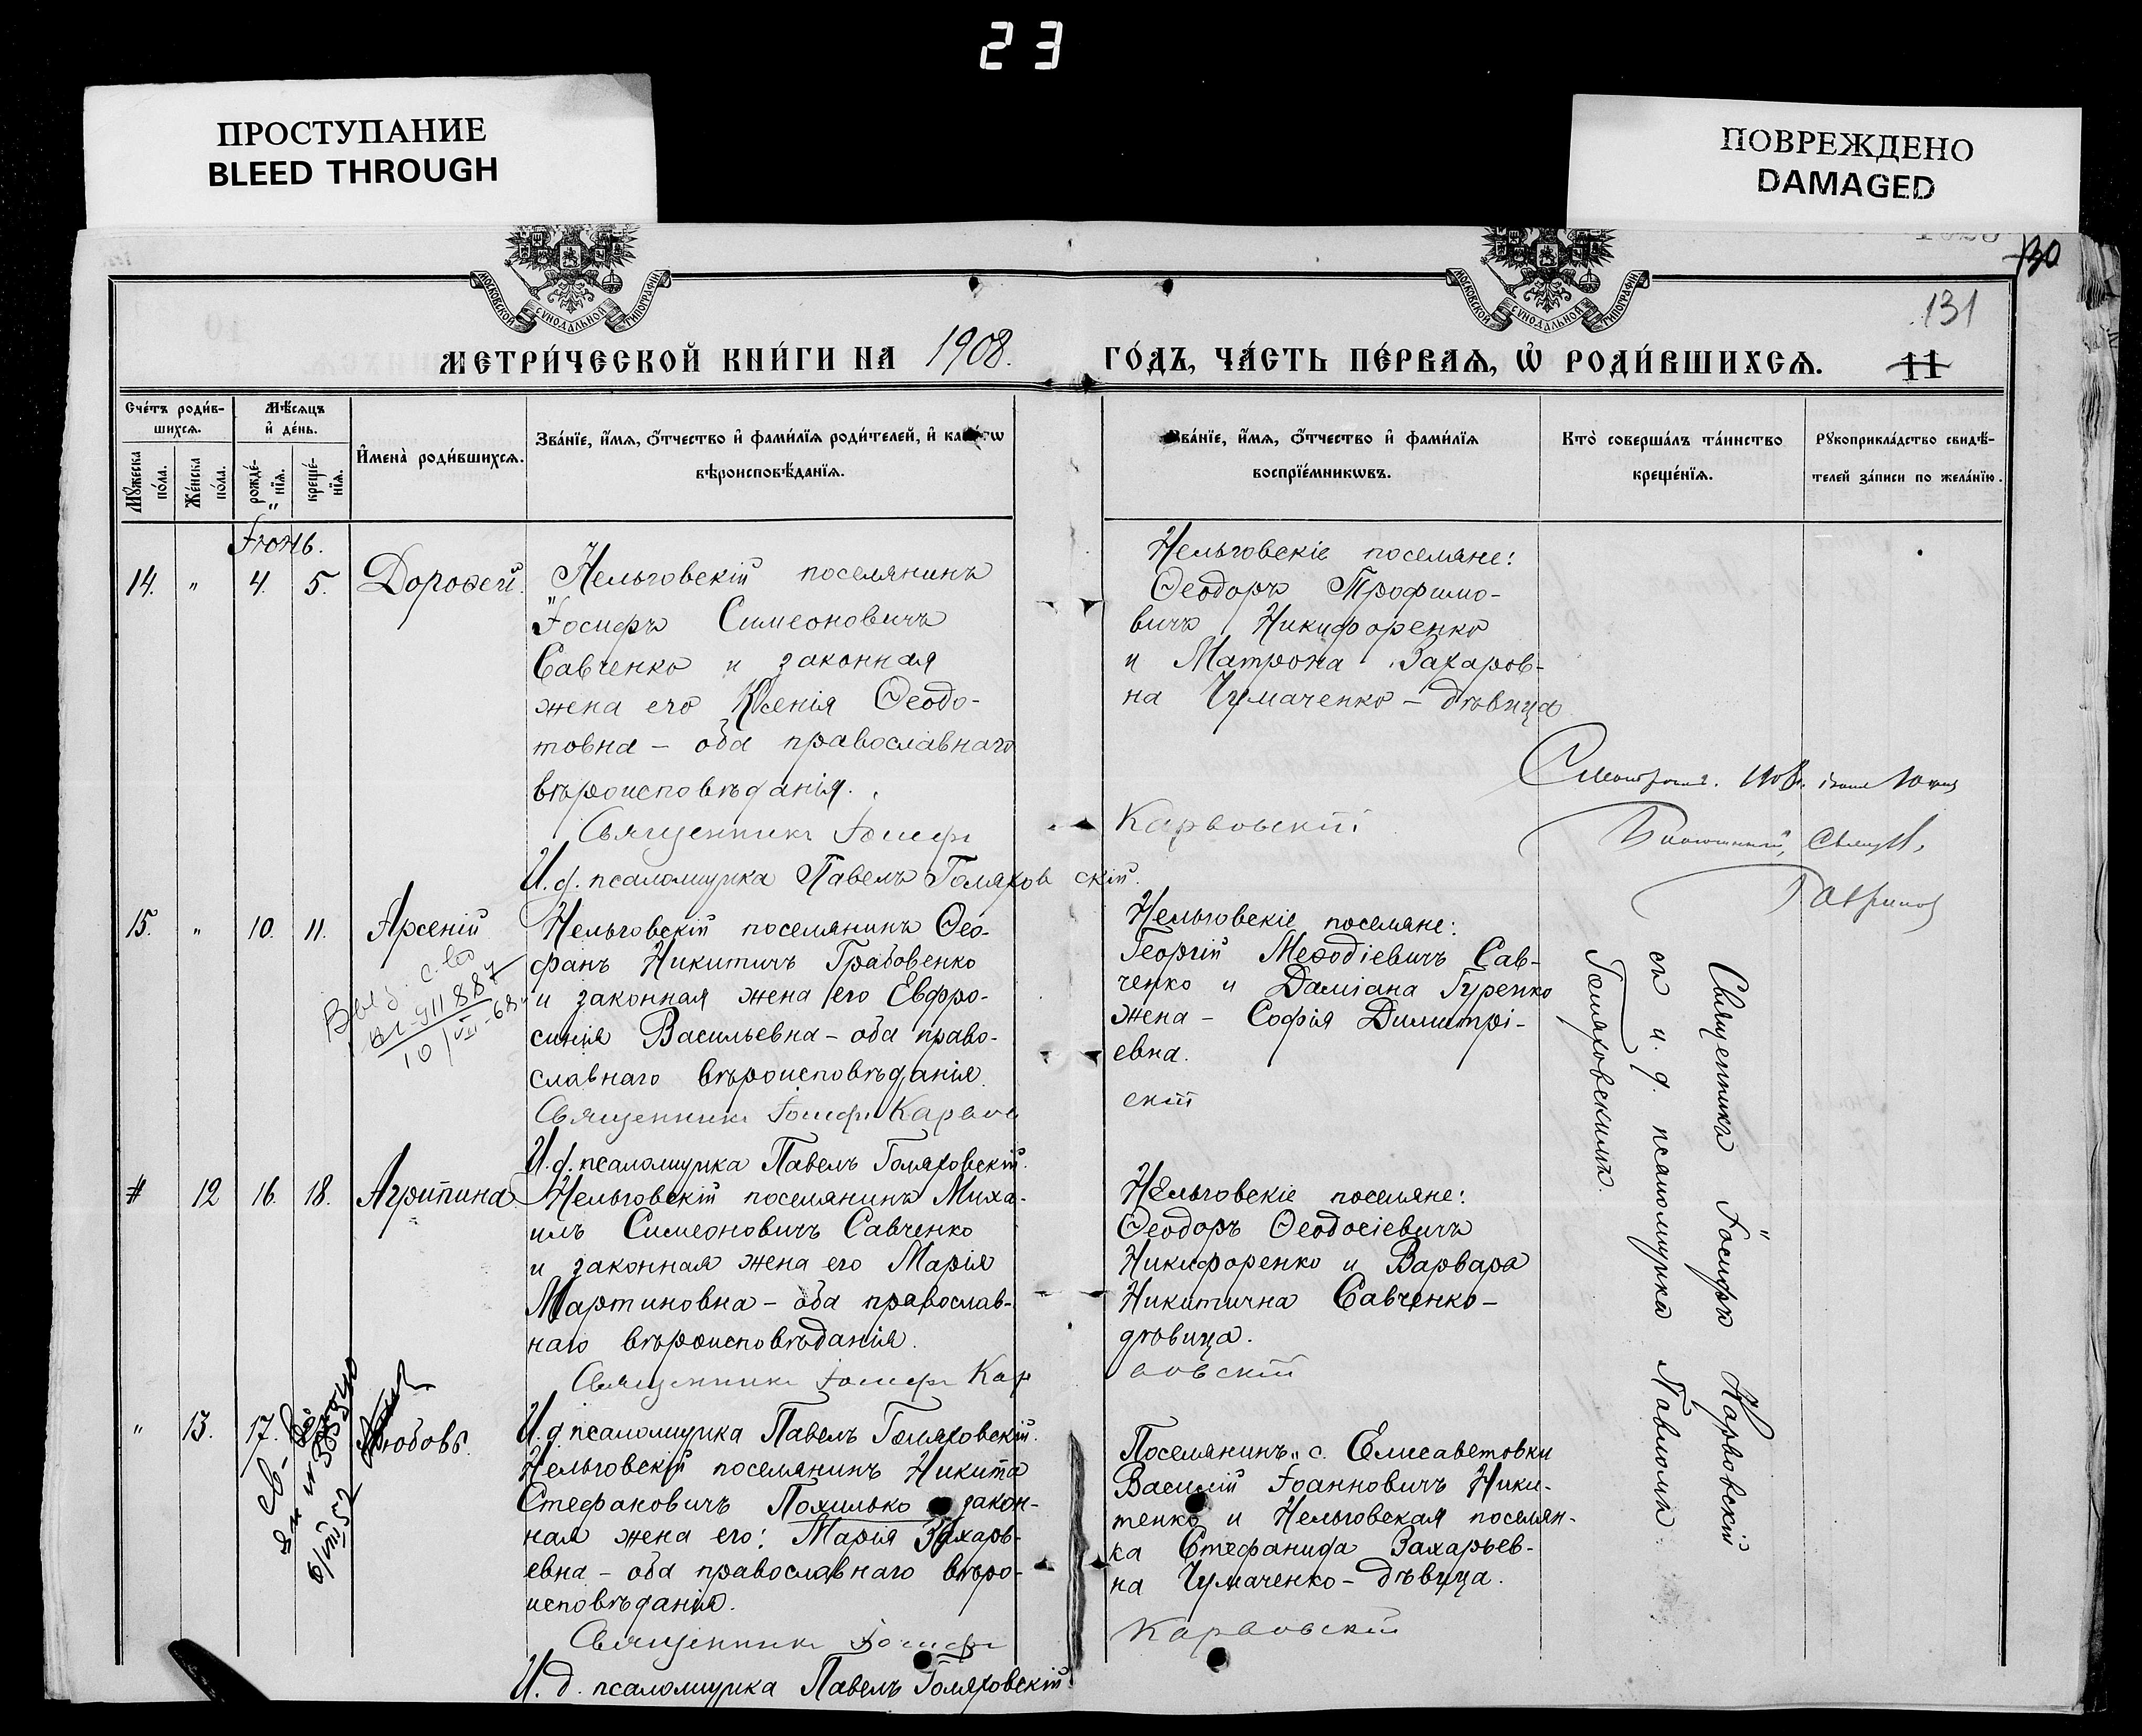 23
ПРОСТУПАНИЕ
BLEED THROUGH
ПОВРЕЖДЕНО
DAMAGED
МОСКОВСКОЙ СѴНОДАЛЬНОЙ ТИПОГРАФІИ
МОСКОВСКОЙ СѴНОДАЛЬНОЙ ТИПОГРАФІИ
130
131
МЕТРИ́ЧЕСКОЙ КНИ́ГИ НА 1908. ГО́ДЪ, ЧА́СТЬ ПЕ́РВАѦ, Ѡ҆ РОДИ́ВШИХСѦ. 11
Сче́тъ роди́в-
шихсѧ.
Мꙋ́жеска по́ла.
Же́нска по́ла.
Мѣ́сѧцъ
и҆ де́нь.
рожде́-
нїѧ.
креще́-
нїѧ.
И҆мена̀ роди́вшихсѧ.
Зва́нїе, и҆́мѧ, ѻ҆́тчество и҆ фами́лїѧ роди́телей, и҆ како́гѡ
вѣроисповѣ́данїѧ.
Зва́нїе, и҆́мѧ, ѻ҆́тчество и҆ фами́лїѧ
воспрїе́мникѡвъ.
Кто̀ соверша́лъ та́инство
креще́нїѧ.
Рꙋкоприкла́дство свидѣ́-
телей за́писи по жела́нїю.
Іюнь.
14. " 4. 5. Дороѳей.
Нельговскій поселянинъ
Іосифъ Симеоновичъ
Савченко и законная
жена его Ксенія Ѳеодо-
товна – оба православнаго
вѣроисповѣданія.
Священникъ Іосифъ Карвовскій
И. д. псаломщика Павелъ Голяховскій.
Нельговскіе поселяне:
Ѳеодоръ Трофимо-
вичъ Никифоренко
и Матрона Захаров-
на Чумаченко – дѣвица
15. " 10. 11. Арсеній
Выд. с-во
911887
10/VII-68
Нельговскій поселянинъ Ѳео-
фанъ Никитичъ Грабовенко
и законная жена его Евфро-
синія Васильевна – оба право-
славнаго вѣроисповѣданія.
Священникъ Іосифъ Карвовскій
И. д. псаломщика Павелъ Голяховскій.
Нельговскіе поселяне:
Георгій Меѳодіевичъ Сав-
ченко и Даміана Гуренко
жена – Софія Димитрі-
евна.
12 16. 18. Агрипина
Нельговскій поселянинъ Миха-
илъ Симеоновичъ Савченко
и законная жена его Марія
Мартиновна – оба православ-
наго вѣроисповѣданія.
Священникъ Іосифъ Карвовскій
И. д. псаломщика Павелъ Голяховскій.
Нельговскіе поселяне:
Ѳеодоръ Ѳеодосіевичъ
Никифоренко и Варвара
Никитична Савченко –
дѣвица.
" 13. 17. Любовь.
6/VIII 52
Нельговскій поселянинъ Никита
Стефановичъ Похилько и закон-
ная жена его: Марія Захарь-
евна – оба православнаго вѣро-
исповѣданія.
Священникъ Іосифъ Карвовскій
И. д. псаломщика Павелъ Голяховскій.
Поселянинъ с. Елисаветовки
Василій Іоанновичъ Ники-
тенко и Нельговская поселян-
ка Стефанида Захарьев-
на Чумаченко – дѣвица.
Священникъ Іосифъ Карвовскій
съ и. д. псаломщика Павломъ
Голяховскимъ.